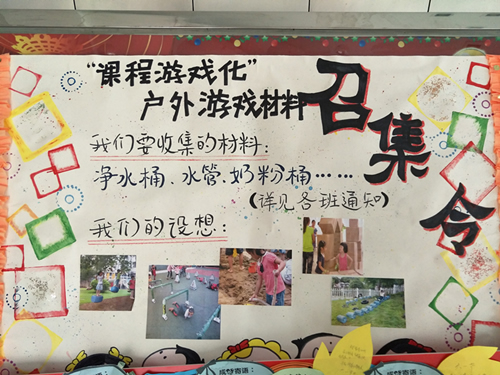 “课程游戏化”
户外游戏材料
召集令
我们要收集的材料：
净水桶、水管、奶粉桶……
（详见各班通知）
我们的设想：